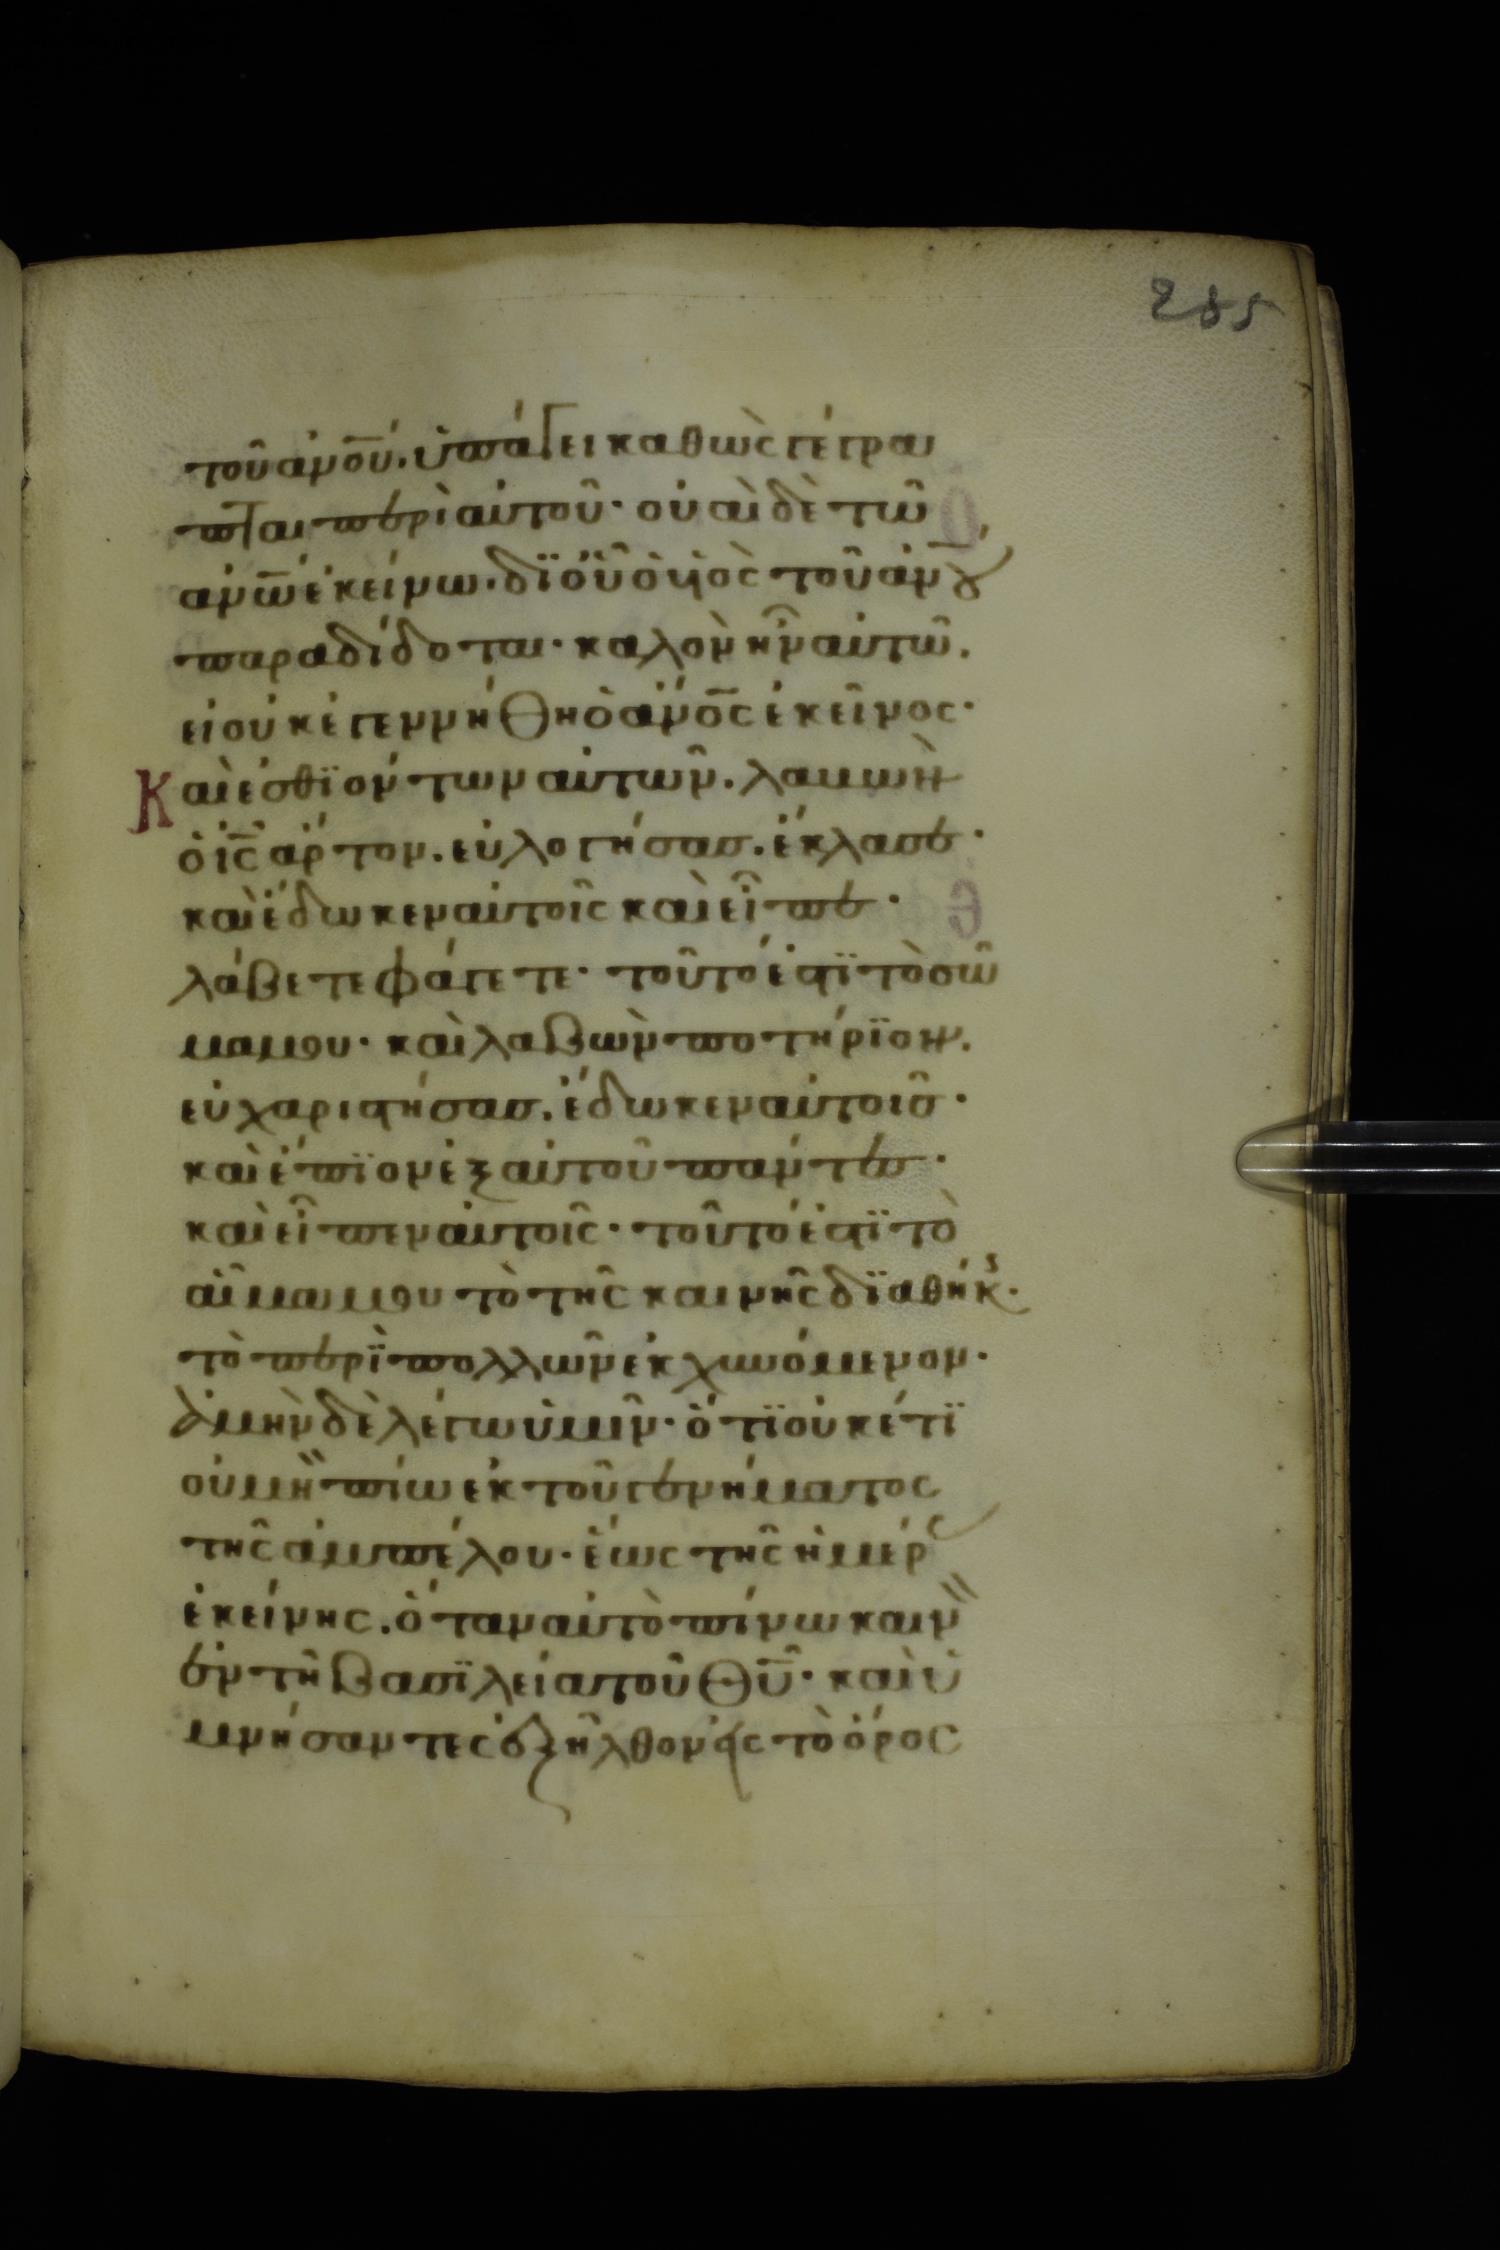 285
τοῦ ἀν̅ο̅ύ. ὑπάγει καθὼς γέγρα
πται περὶ αὐτοῦ· οὐαὶ δὲ τῶ
ἀν̅ω̅ ἐκείνω. δϊ οὗ ὁ υἱὸς τοῦ ἀν̅ου
παραδίδοται· καλὸν ἦν αὐτῶ.
εἰ οὐκ ἐγεννήθη ὁ ἄν̅ο̅ς ἐκεῖνος·
Καὶ ἐσθϊόντων αὐτῶν. λαβὼν
ὁ ι̅ς̅ ἄρτον. εὐλογήσας. ἔκλασε·
καὶ ἔδωκεν αὐτοῖς καὶ εἶπε·
λάβετε φάγετε· τοῦτό ἐστϊ τὸ σῶ
μα μου· καὶ λαβὼν ποτήρϊον.
εὐχαριστήσας. ἔδωκεν αὐτοῖς·
καὶ ἔπϊον ἐξ αὐτοῦ πάντες·
καὶ εἶπεν αὐτοῖς· τοῦτό ἐστϊ τὸ
αἷμα μου τὸ τῆς καινῆς δϊαθήκ.
τὸ περῒ πολλῶν ἐκχυνόμενον·
ἀμὴν δὲ λέγω ὑμῖν· ὅτϊ οὐκέτϊ
οὐ μὴ πίω ἐκ τοῦ γενήματος
τῆς ἀμπέλου· ἕως τῆς ἡμέρ
ἐκείνης. ὅταν αὐτὸ πίνω καιν
ἐν τῆ βασϊλεία τοῦ θ̅υ̅· καὶ ὑ
μνήσαντες ἐξῆλθον εἰς τὸ ὄρος